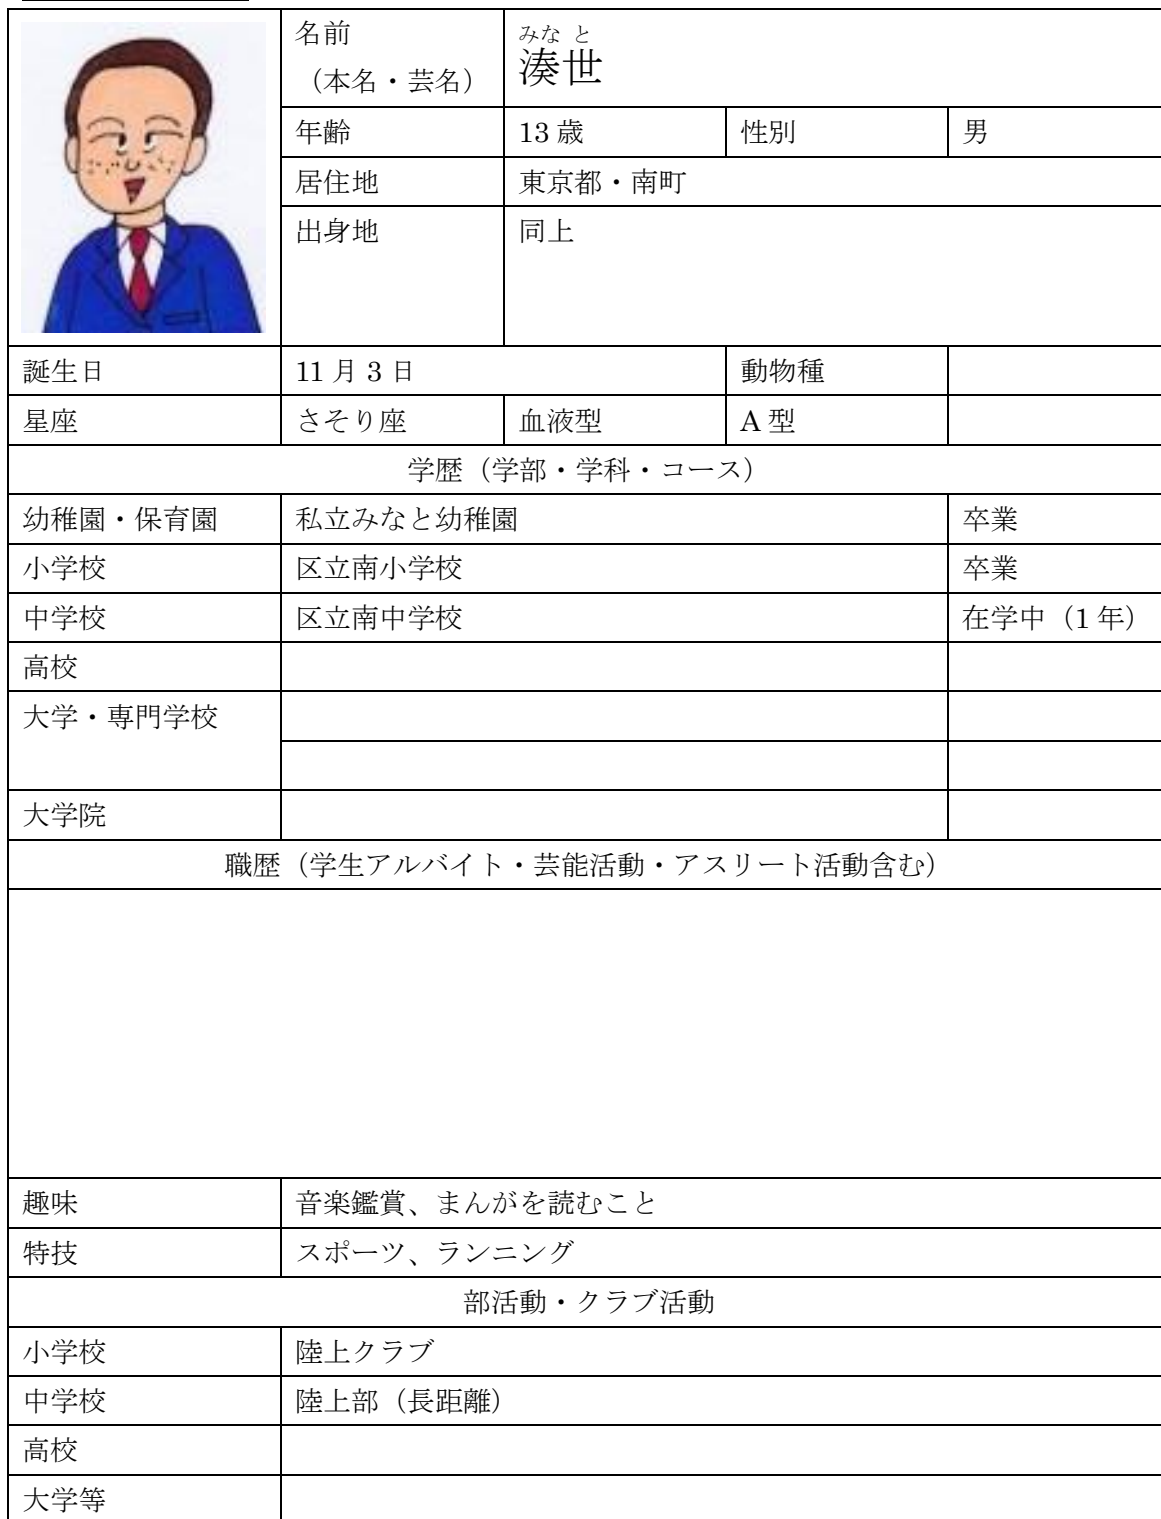 名前
（本名・芸名）
みな と
湊世
年齢 13 歳 性別 男
居住地 東京都・南町
出身地 同上
誕生日 11 月 3 日 動物種
星座 さそり座 血液型 A 型
学歴（学部・学科・コース）
幼稚園・保育園 私立みなと幼稚園 卒業
小学校 区立南小学校 卒業
中学校 区立南中学校 在学中（1 年）
高校
大学・専門学校
大学院
職歴（学生アルバイト・芸能活動・アスリート活動含む）
趣味 音楽鑑賞、まんがを読むこと
特技 スポーツ、ランニング
部活動・クラブ活動
小学校 陸上クラブ
中学校 陸上部（長距離）
高校
大学等